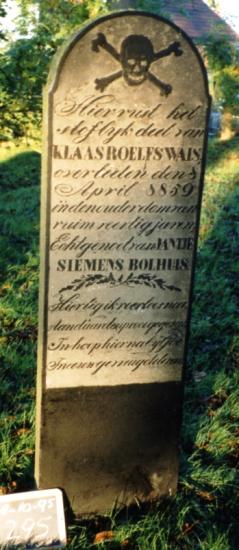 Hier rust het
stoflyk deel van
KLAAS ROELFS WAIS,
overleden den 8
April 1859
in den ouderdom van
ruim veertig jaren
Echtgenoot van JANTJE
SIEMENS BOLHUIS.
Hier lig ik
In hoop hierna by
10-95
295